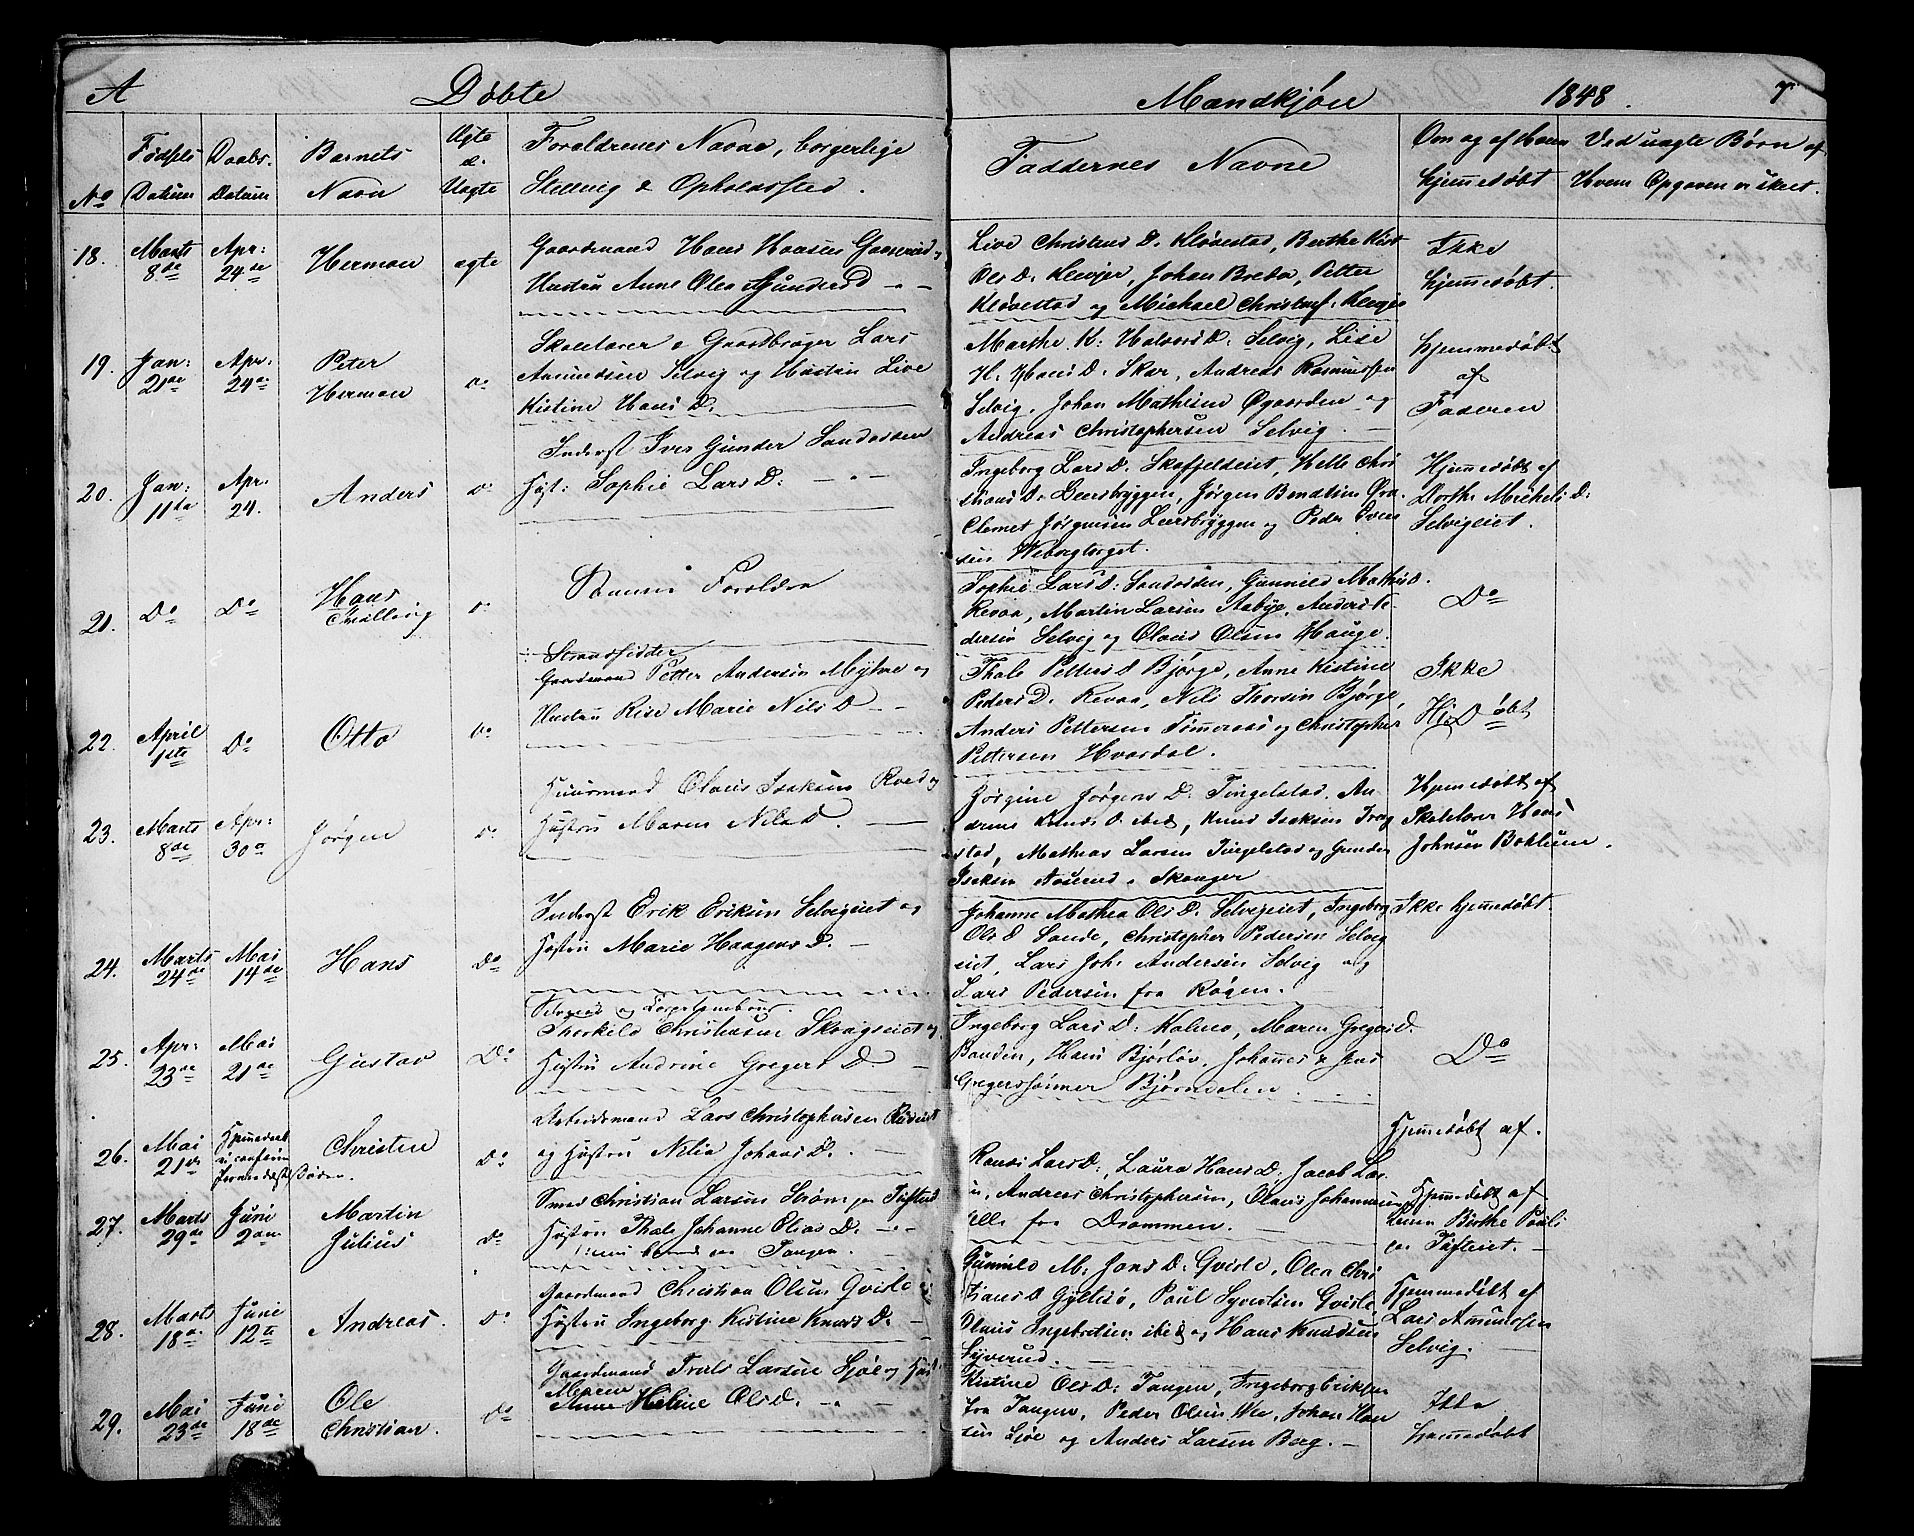 A Døbte
Mandkjøn 1848. 7
No
Fødsels Datum
Daabs. Datum
Barnets Navn
Ægte el. Uægte
Forældrenes Navne, borgerlige
Stilling & Opholdssted.
Faddernes Navne
Om og af Hvem
hjemmedøbt
Ved uægte Børn af
Hvem Opgaven er skeet.
18. Marts 8de Apr: 24de Herman ægte
Gaardmand Hans Hansen
Hustru Anne Olea Gunders D
Live Christens D. Kløvestad, Berthe Kist
Ols D. Klevjer, Johan Breda, Petter
Kløvestad og Michael Christof.
Ikke
hjemmedøbt.
19. Jan: 21de Apr: 24de Peter Herman Do
Skolelærer & Gaardbruger Lars
Amundsen Selvig og Hustru Live
Kistine Hans D.
Marthe K: Halvors D. Selvig, Lise
H. Hans D. Skar, Andreas Rasmussen
Selvig, Johan Mathisen Øgaarden og
Andreas Christophersen Selvig.
hjemmedøbt
af
Faderen
20. Jan: 11te Apr. 24. Anders Do
Inderst Iver Gunder Sandosden
Hust: Sophie Lars D.
Ingeborg Lars D. Skafjeldeiet, Helle Chri
stians D. Leersbryggen, Jørgen Bendtsen
Clemet Jørgensen Leersbryggen og Peder
sen
Hjemmedøbt af
Dorthe Michels D:
Selvigeiet.
21. Do Do Hans Do
Samme Forældre
Sophie Lars D: Sandosden, Gunnild Mathis D.
Revaa, Martin Larsen Aabye, Anders
dersen Selvig og Olaus Olsen Hauge.
Do
22. April 1ste Do Otto Do
Strandsidder
Gaardmand Petter Andersen Myhre og
Hustru Rise Marie Nils D
Thale Petters D Bjørge, Anne Kistine
Peders D. Revaa, Nils Thorsen Bjørge
Anders Pettersen Tømmeraas og Christopher
Pettersen Hvardal.
Ikke
Hj Do øbt
23. Marts 8de Apr: 30te Jørgen Do
Huusmand Olaus Isaksen Roed og
Hustru Maren Nils D.
Jørgine Jørgens D. Tingelstad, An
drine Knuds D. ibid, Knud Isaksen
stad, Mathias Larsen Tingelstad og Gunder
Isaksen Aaserud i Skouger
Hjemmedøbt af
Skolelærer Hans
Johnsen Bohlum.
24. Marts 24de Mai 14de Hans Do
Inderst Erik Eriksen Selvigeiet og
Hustru Marie Haagens D.
Johanne Mathea Ols D. Selvigeiet, Ingeborg
Ols D Sande, Christopher Pedersen Selvig
eiet, Lars Joh. Andersen Selvig og
Lars Pedersen fra Røgen.
Ikke hjemmedøbt.
25. Apr: 23de Mai 21de Gustav Do
Thorkild Christensen Skougseiet og
Hustru Andrine Gregers D.
Ingeborg Lars D: Holmen, Maren Gregers D.
Banden, Hans Bjørløv, Johannes & Jens
Gregerssønner Bjørndalen.
Do
26. Mai 21de Hjemmedøbt Christen Do
Døden.
Arbeidsmand Lars Christophersen
og Hustru Nelia Johans D.
Hjemmedøbt af.
27. Marts 29de Juni 2den Martin Julius Do
Smed Christian Larsen Strøm
Hustru Thale Johanne Elias D.
Tangen.
Randi Lars D:, Laura Hans D: Jacob Lar
n, Andreas Christophersen, Olaus Johannesen
alle fra Drammen.
Hjemmedøbt af
Berthe Pauls
Tufteiet.
28. Marts 18de Juni 12te Andreas. Do
Gaardmand Christian Olsen Gvisle og
Hustru Ingeborg Kistine Knuds D.
Gunnild M: Jons D: Gvisle, Olea Chri
stians D Gyltesø, Paul Syvertsen Gvisle
Olaus Ingebretsen ibid og Hans Knudsen
Syverud.
Hjemmedøbt af
Lars Amundsen
Selvig.
29. Mai 23de Juni 18de Ole Christian. Do
Gaardmand Truls Larsen Sjøl og Hust.
Maren
Anne Heline Ols D.
Kistine Ols D: Tangen, Ingeborg Eriksen
fra Tangen, Peder Olsen Wee, Johan Han
sen Sjøl og Anders Larsen Berg.
Ikke
hjemmedøbt